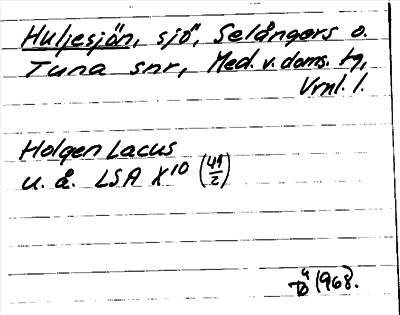 Huljesjön, sjö, Selångers o.
Tuna snr, Med. v. doms. tg,
Vrnl. l.
Holgen Lacus
u. å. LSA X10 (49/2)
1968.